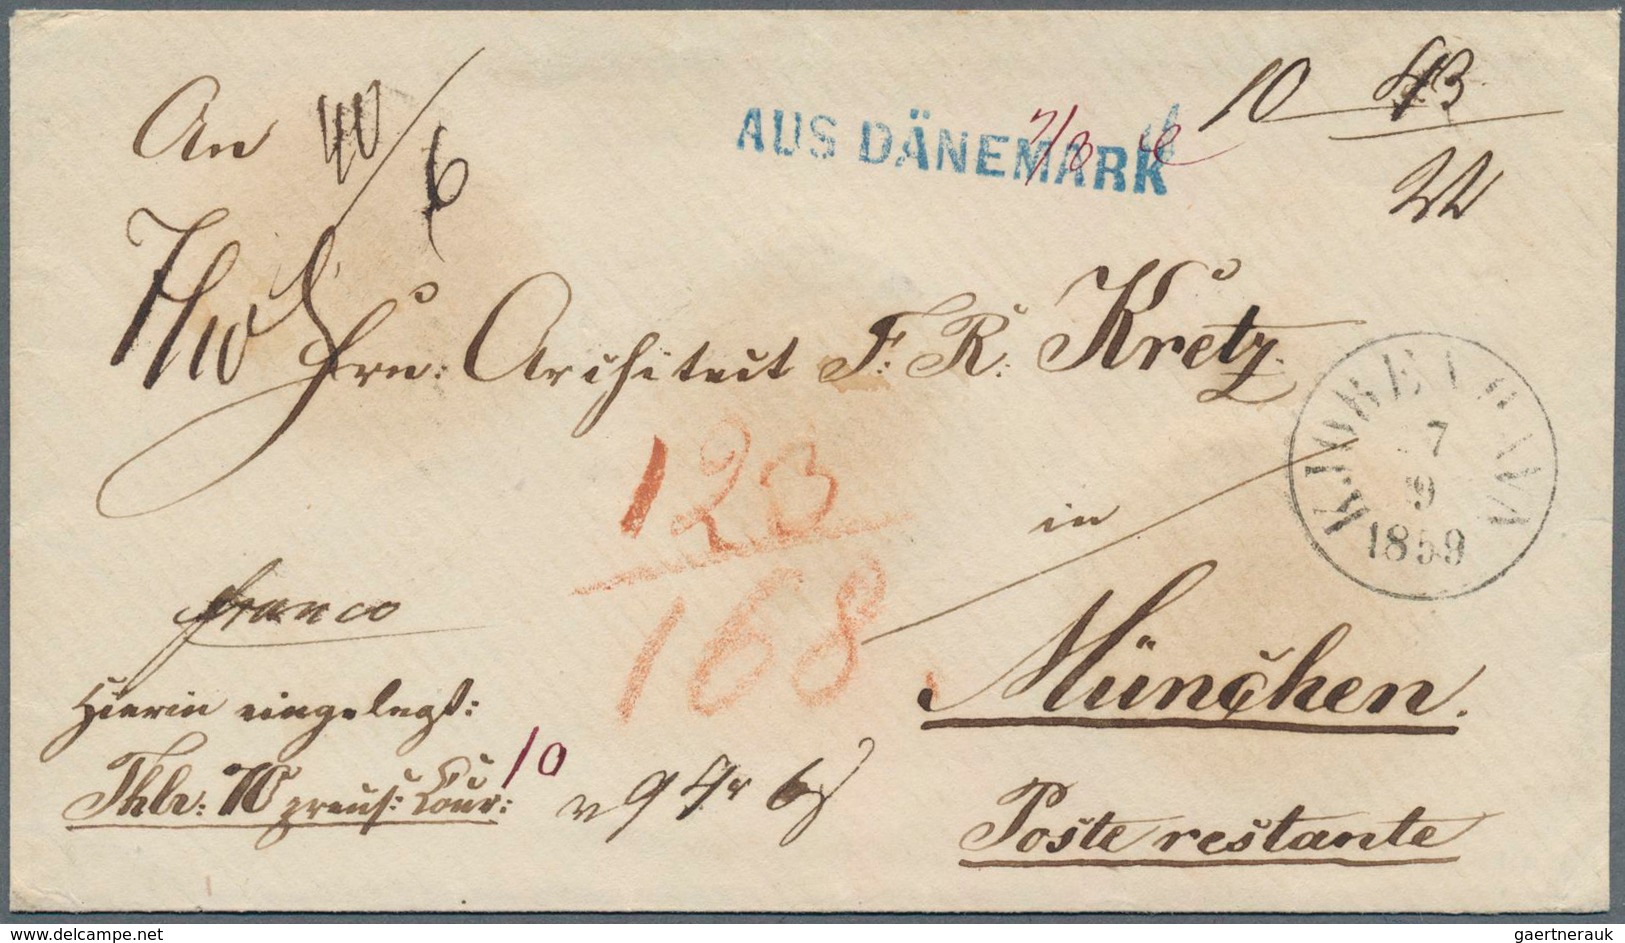 An
40/6
AUS DÄNEMARK
7/8
10
7/10
Hrn: Architect F. R. Kretz.
KJOBENHAVN
7
9
1859
123
168
in
franco
München.
Hierin eingelegt:
10
Thlr: 70 preuß: Cour:
Poste restante
www.delcampe.com
gaertnerauk